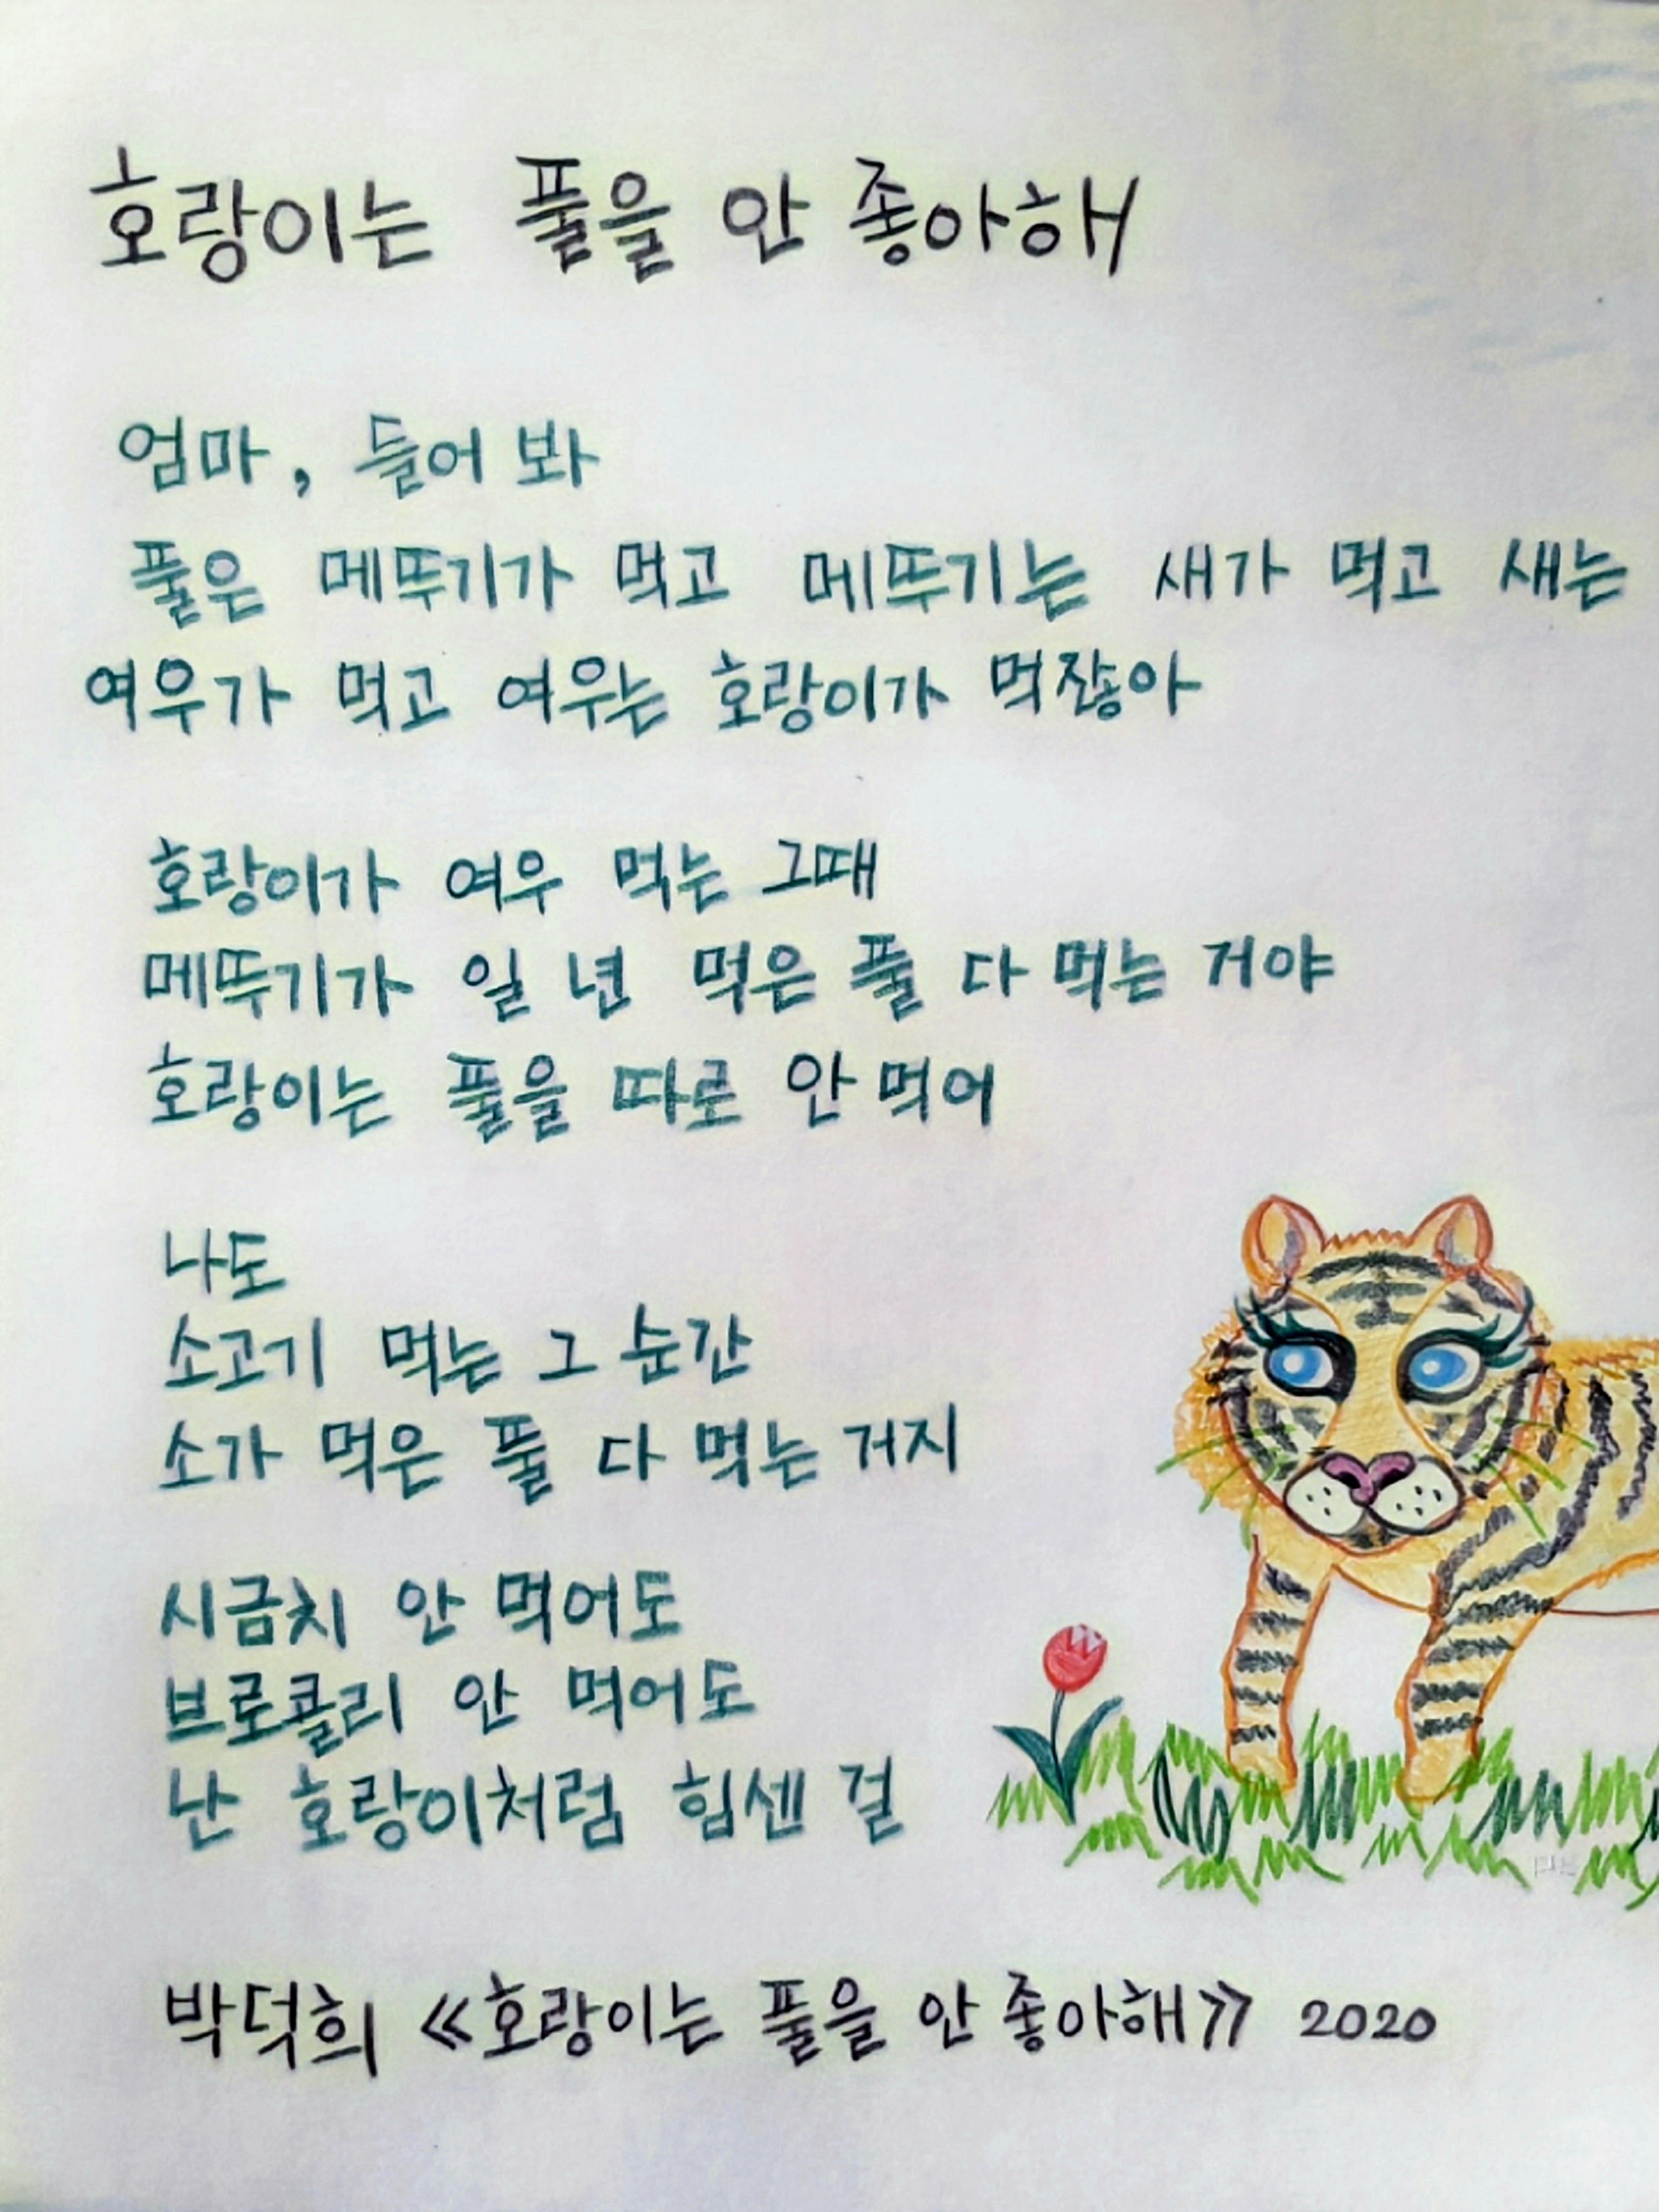 호랑이는 풀을 안 좋아해
엄마, 들어 봐
풀은 메뚜기가 먹고 메뚜기는 새가 먹고 새는
여우가 먹고 여우는 호랑이가 먹잖아
호랑이가 여우 먹는 그때
메뚜기가 일 년 먹은 풀 다 먹는 거야
호랑이는 풀을 따로 안 먹어
나도
소고기 먹는 그 순간
소가 먹은 풀 다 먹는 거지
시금치 안 먹어도
브로콜리 안 먹어도
난 호랑이처럼 힘센 걸
박덕희 《호랑이는 풀을 안 좋아해》 2020